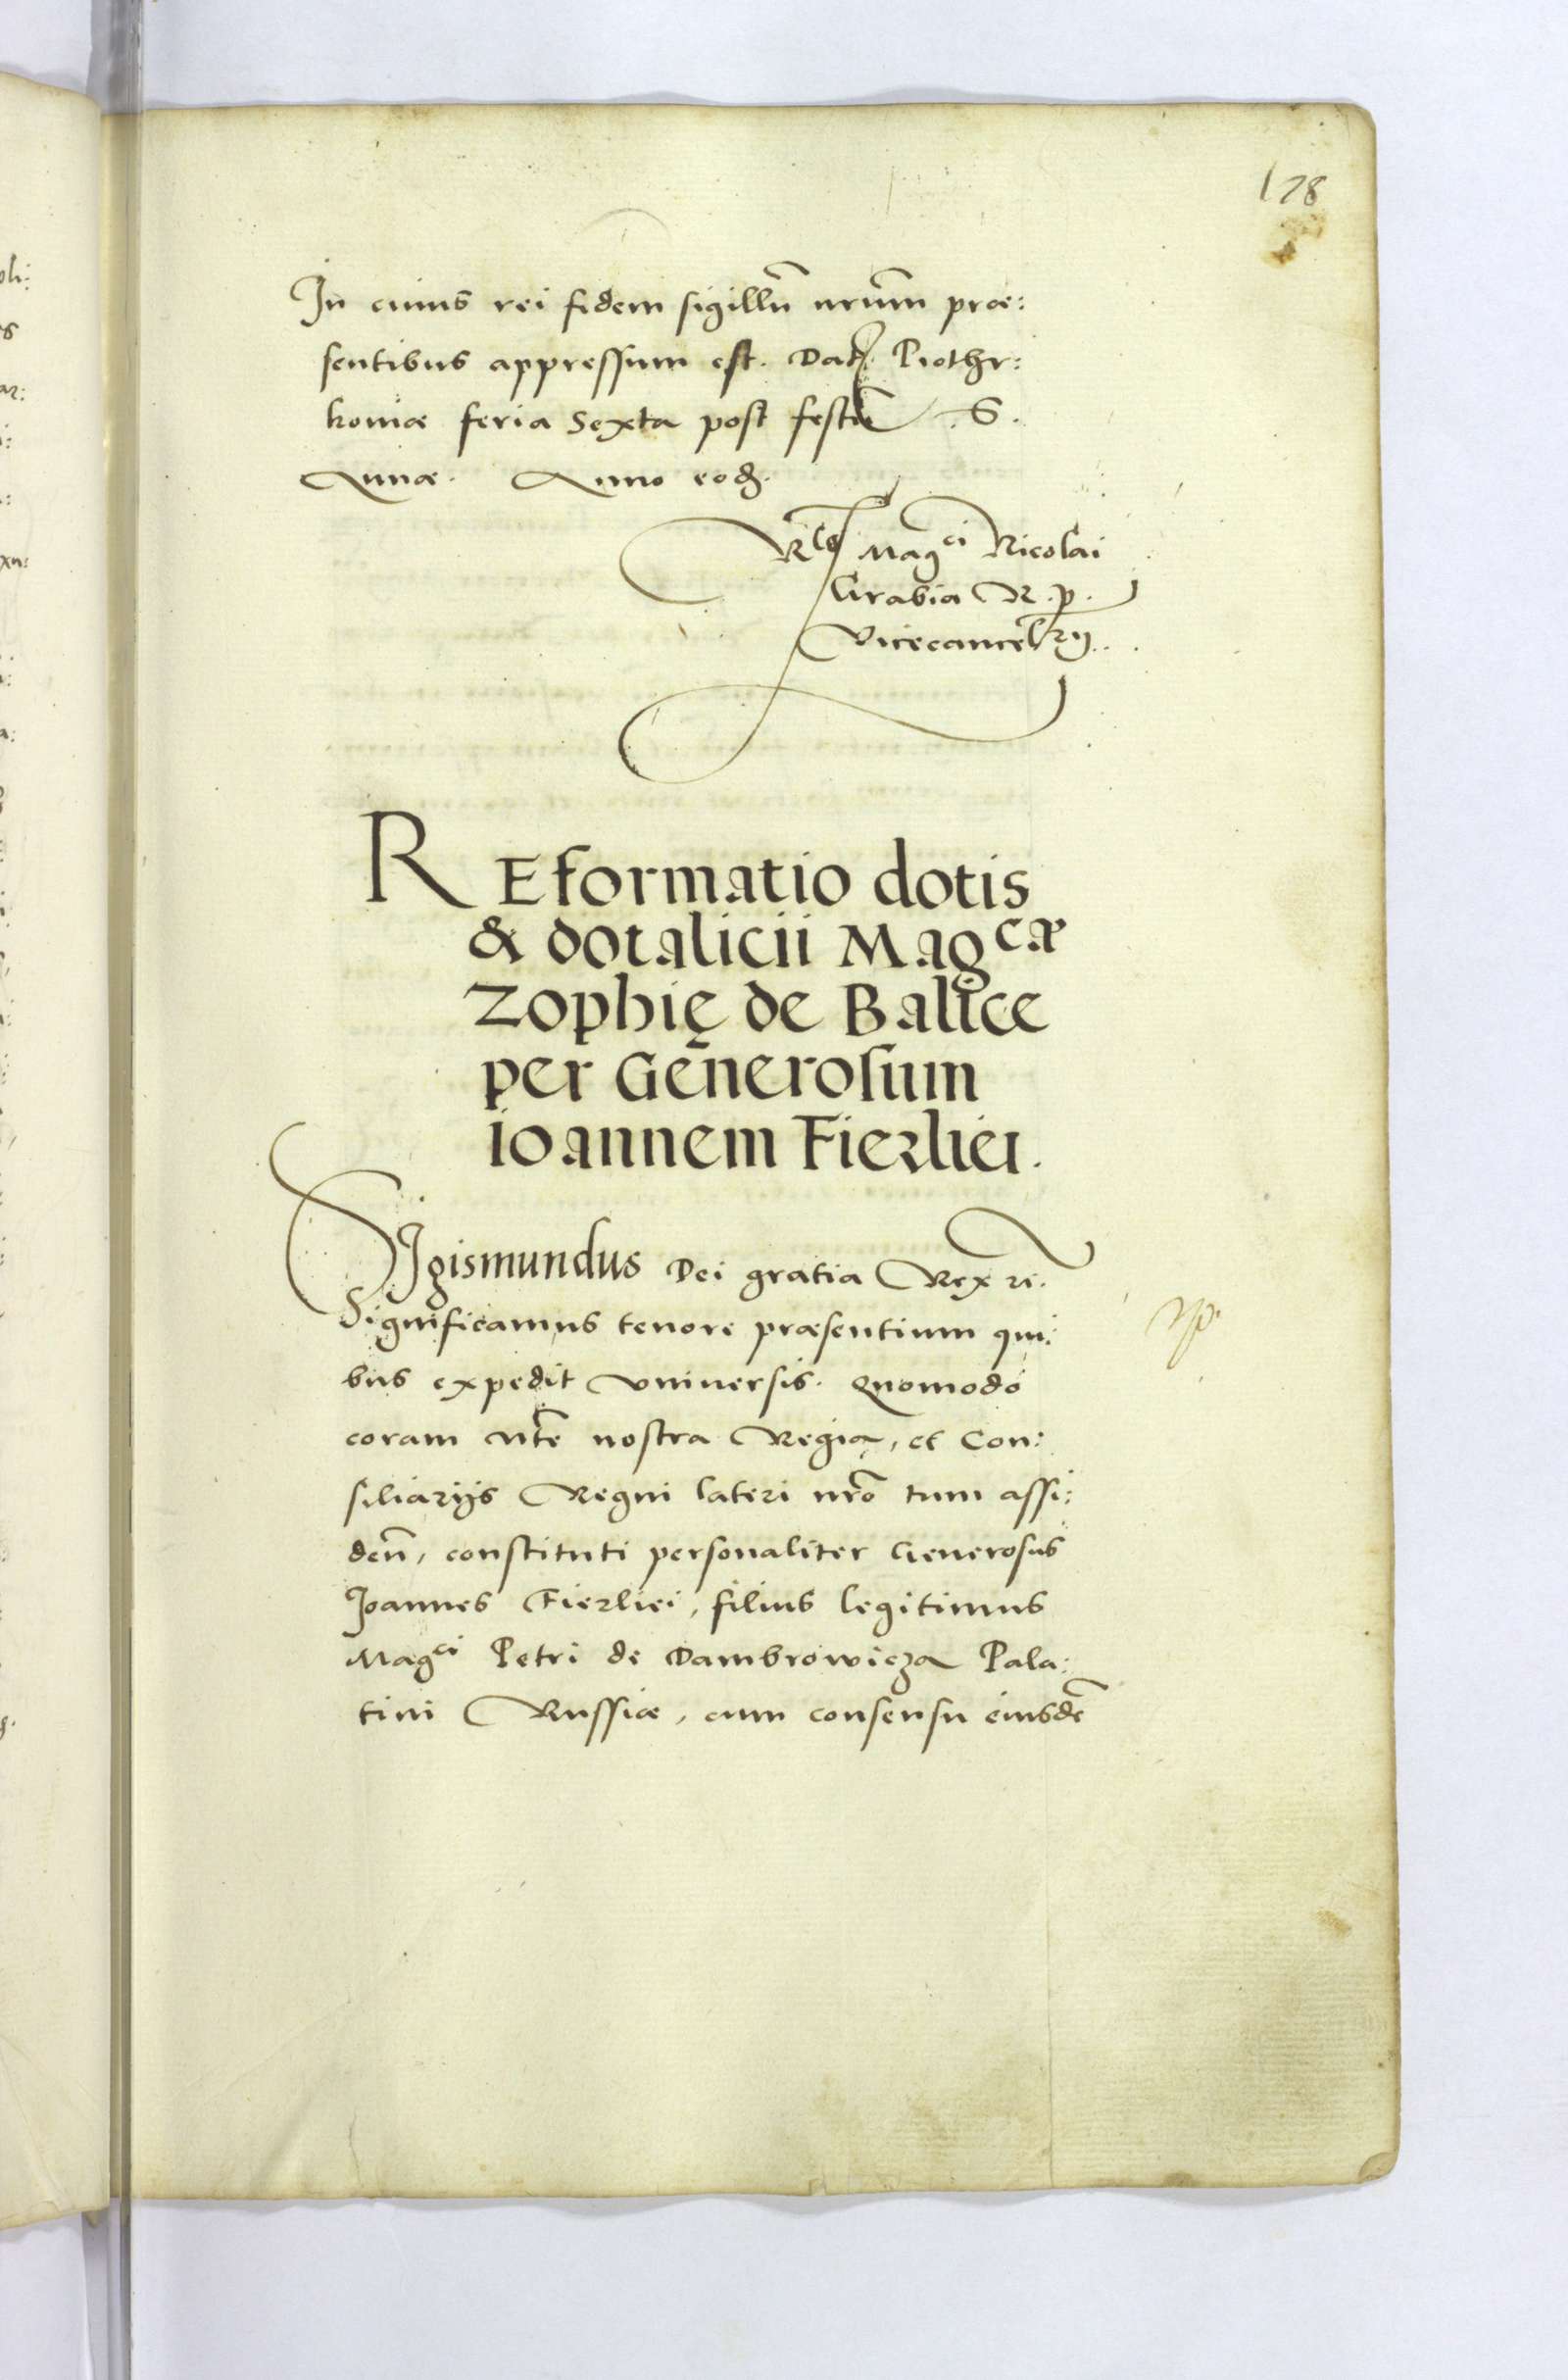 128
In cuius rei fidem sigillũ nrũm præ:
sentibus appressum est. Dat. Piothr:
koviæ feria Sexta post festũ .S.
Annæ. Anno eod.
Rlõ Mag^ci Nicolai
Grabia R. p.
Vicecancelrij..
REformatio dotis
& dotalicii Mag^cæ
Zophię de Balice
per Generosum
ioannem Fierliei.
Sigismundus Dei gratia Rex rc.
Significamus tenore præsentium qui:
bus expedit vniuersis. Quomodo
coram Mte nostra Regia, et Con:
siliarijs Regni lateri nrõ tum assi:
deñ, constituti personaliter Generosus
Joannes Fierliei, filius legitimus
Mag^ci Petri de Dambrowicza Pala:
tini Russiæ, cum consensu eiusdẽ